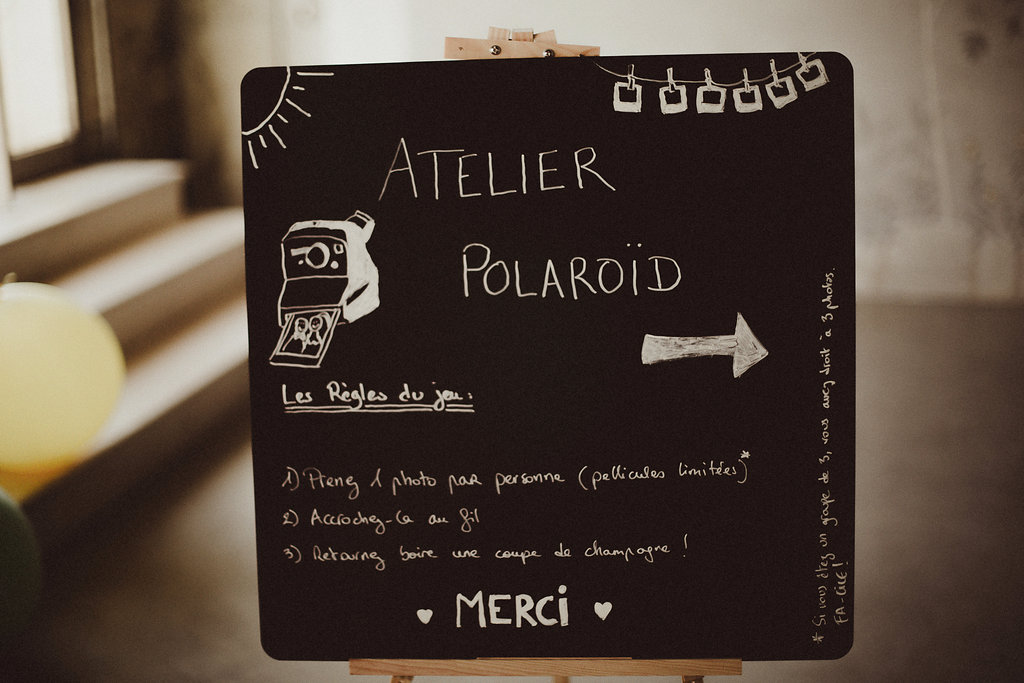 ATELIER
POLAROÏD
Les Règles du jeu :
1) Prenez 1 photo par personne (pellicules limitées)*
2) Accrochez-la au fil
3) Retournez boire une coupe de champagne !
♥ MERCi ♥
* Si vous êtes un groupe de 3, vous avez droit à 3 photos.
FA-CILE !